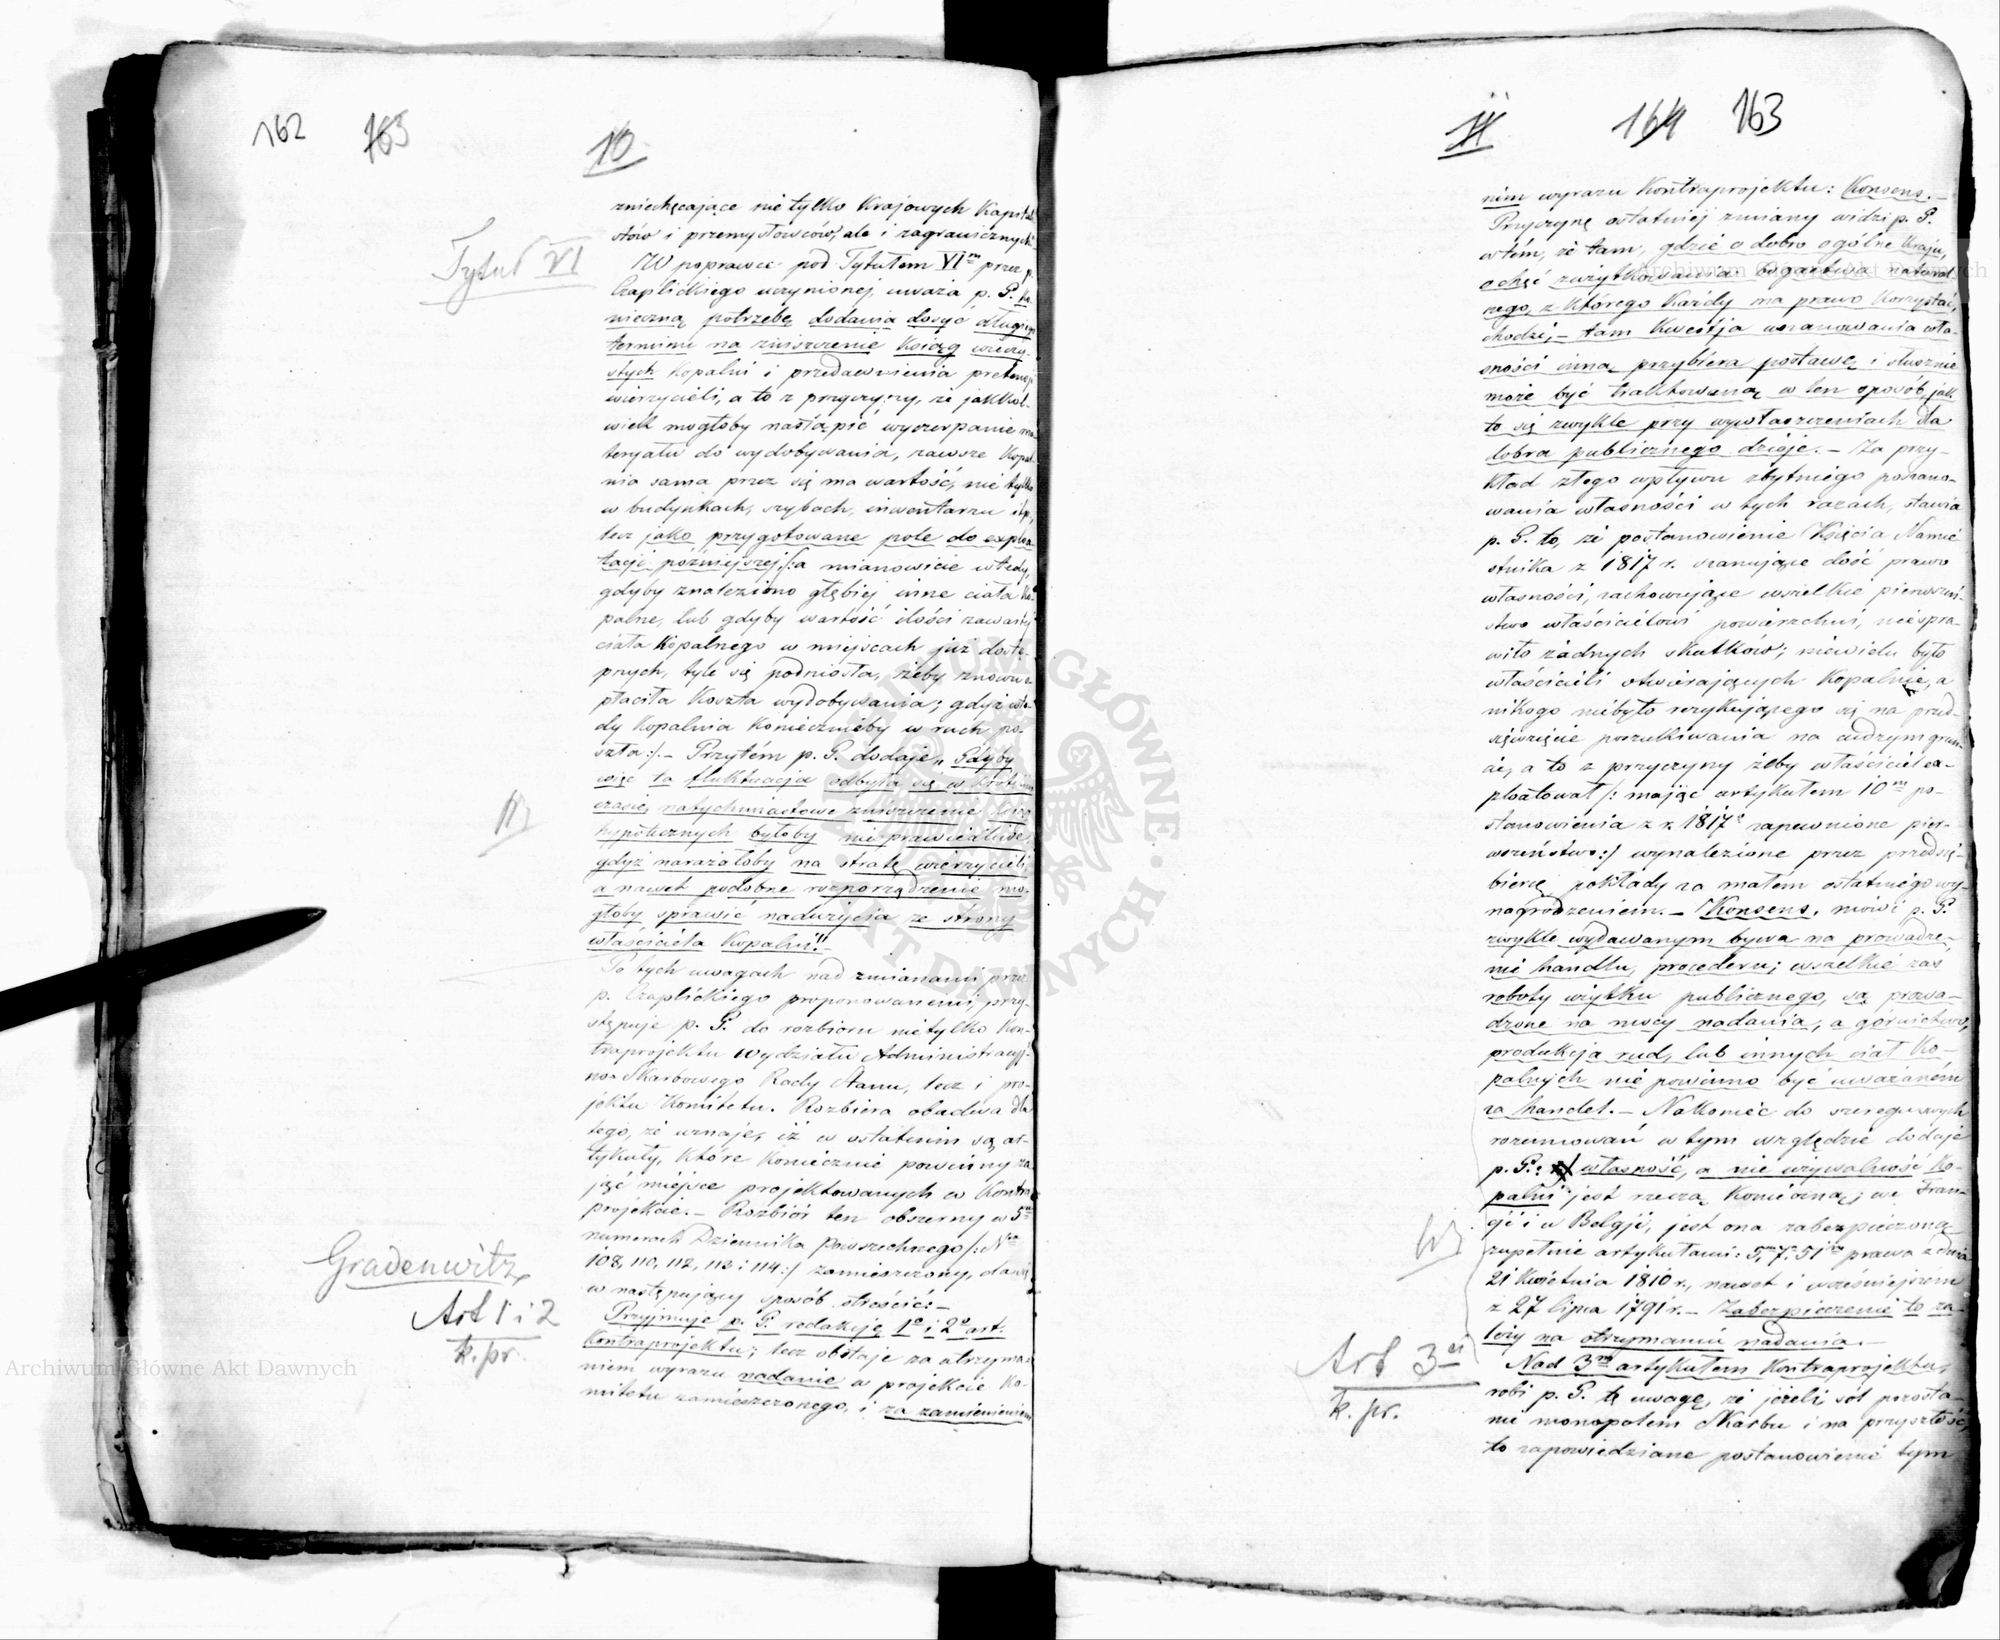 162 163
10
zniechęcające nie tylko Krajowych Kapita
stów i przemysłowców, ale i zagranicznych.
Tytuł VI
W poprawce pod Tytułem VIm przez p.
Czaplickiego uczynionej, uważa p. G. ko
nieczną potrzebę dodania dosyć długiego
terminu na zniszczenie Ksiąg wieczy-
stych Kopalni i przedawnienia pretensji
wierzycieli, a to z przyczyny, że jakkol-
wiek mogłoby nastąpić wyczerpanie ma-
teryału do wydobywania, zawsze Kopal-
nia sama przez się ma wartość, nie tylko
w budynkach, szybach, inwentarzu itp,
lecz jako przygotowane pole do exploa-
tacji późniejszej /:a mianowicie wtedy,
gdyby znaleziono głębiej inne ciała Ko
palne, lub gdyby wartość ilości zawartej
ciała Kopalnego w miejscach już dostę-
pnych, tyle się podniosła, żeby znowu o
płaciła Koszta wydobywania; gdyż wte-
dy Kopalnia Koniecznieby w ruch po-
szła:/. – Przytém p. G. dodaje „Gdyby
więc ta fluktuacja odbyła się w krótkim
czasie, natychmiastowe zniszczenie Ksiąg
hypotecznych byłoby nie prawiedliwe,
gdyż narażałoby na stratę wierzycieli,
a nawet podobne rozporządzenie mo-
głoby sprawić nadużycia ze strony
właściciela Kopalni!"
Po tych uwagach nad zmianami przez
p. Czaplickiego proponowanemi, przy-
stępuje p. G. do rozbioru nietylko Kon-
traprojektu Wydziału Administracyj-
no-Skarbowego Rady Stanu, lecz i pro-
jektu Komitetu. Rozbiera obadwa dla
tego, że uznaje, iż w ostatnim są ar-
tykuły, które Koniecznie powinny za
jąć miejsce projektowanych w Kontra
projekcie. – Rozbiór ten obszerny w 5iu
numerach Dziennika Powszechnego /: Nra
108, 110, 112, 113 i 114:/ zamieszczony, da się
w następujący sposób streścić: –
Gradenwitz,
Art 1 i 2
k. pr.
Przyjmuje p. G. redakcję 1o i 2o art.
Kontraprojektu; lecz obstaje za utrzyma-
niem wyrazu nadanie w projekcie Ko-
mitetu zamieszczonego, i za zamienieniem
11 164 163
nim wyrazu Kontraprojektu: Konsens. –
Przyczynę ostatniej zmiany widzi p. G.
w tém, że tam, gdzie o dobro ogólne Kraju,
o chęć zużytkowania bogactwa natural
nego, z którego Każdy ma prawo Korzystać,
chodzi, – tam Kwestja uszanowania wła-
sności inną przybiera postawę i słusznie
może być traktowaną w ten sposób, jak
to się zwykle przy wywłaszczeniach dla
dobra publicznego dzieje. – Za przy-
kład złego wpływu zbytniego poszano-
wania własności w tych razach, stawia
p. G. to, że postanowienie Księcia Namie
stnika z 1817 r. szanujące dość prawo
własności, zachowujące wszelkie pierwszeń-
stwo właścicielowi powierzchni, niespra-
wiło żadnych skutków; niewielu było
właścicieli otwierających Kopalnie, a
nikogo niebyło ryzykującego się na przed-
sięwzięcie poszukiwania na cudzym grun-
cie, a to z przyczyny żeby właściciel ex-
ploatował /: mając artykułem 10m po-
stanowienia z r. 1817o zapewnione pier-
wszeństwo:/ wynalezione przez przedsię-
biercę pokłady za małem ostatniego wy-
nagrodzeniem. – Konsens, mówi p. G.
zwykle wydawanym bywa na prowadze-
nie handlu, procederu; wszelkie zaś
roboty użytku publicznego, są prowa-
dzone na mocy nadania; a górnictwo,
produkcja rud, lub innych ciał Ko-
palnych nie powinno być uważaném
za handel. – Nakoniec do szeregu swych
rozumowań w tym względzie dodaje
p. G.: własność, a nie używalność Ko-
palni jest rzeczą Konieczną; we Fran-
cji i w Belgji, jest ona zabezpieczoną
zupełnie artykułami: 5, 7, 51 prawa z dnia
21 Kwietnia 1810 r., nawet i wcześniejszém
z 27 lipca 1791 r. – Zabezpieczenie to za-
leży na otrzymaniu nadania. –
Art 3ci
k. pr.
Nad 3m artykułem Kontraprojektu,
robi p. G. tę uwagę, że jeżeli sól pozosta-
nie monopolem Skarbu i na przyszłość,
to zapowiedziane postanowienie tym
Archiwum Główne Akt Dawnych
Archiwum Główne Akt Dawnych
ARCHIWUM GŁÓWNE AKT DAWNYCH